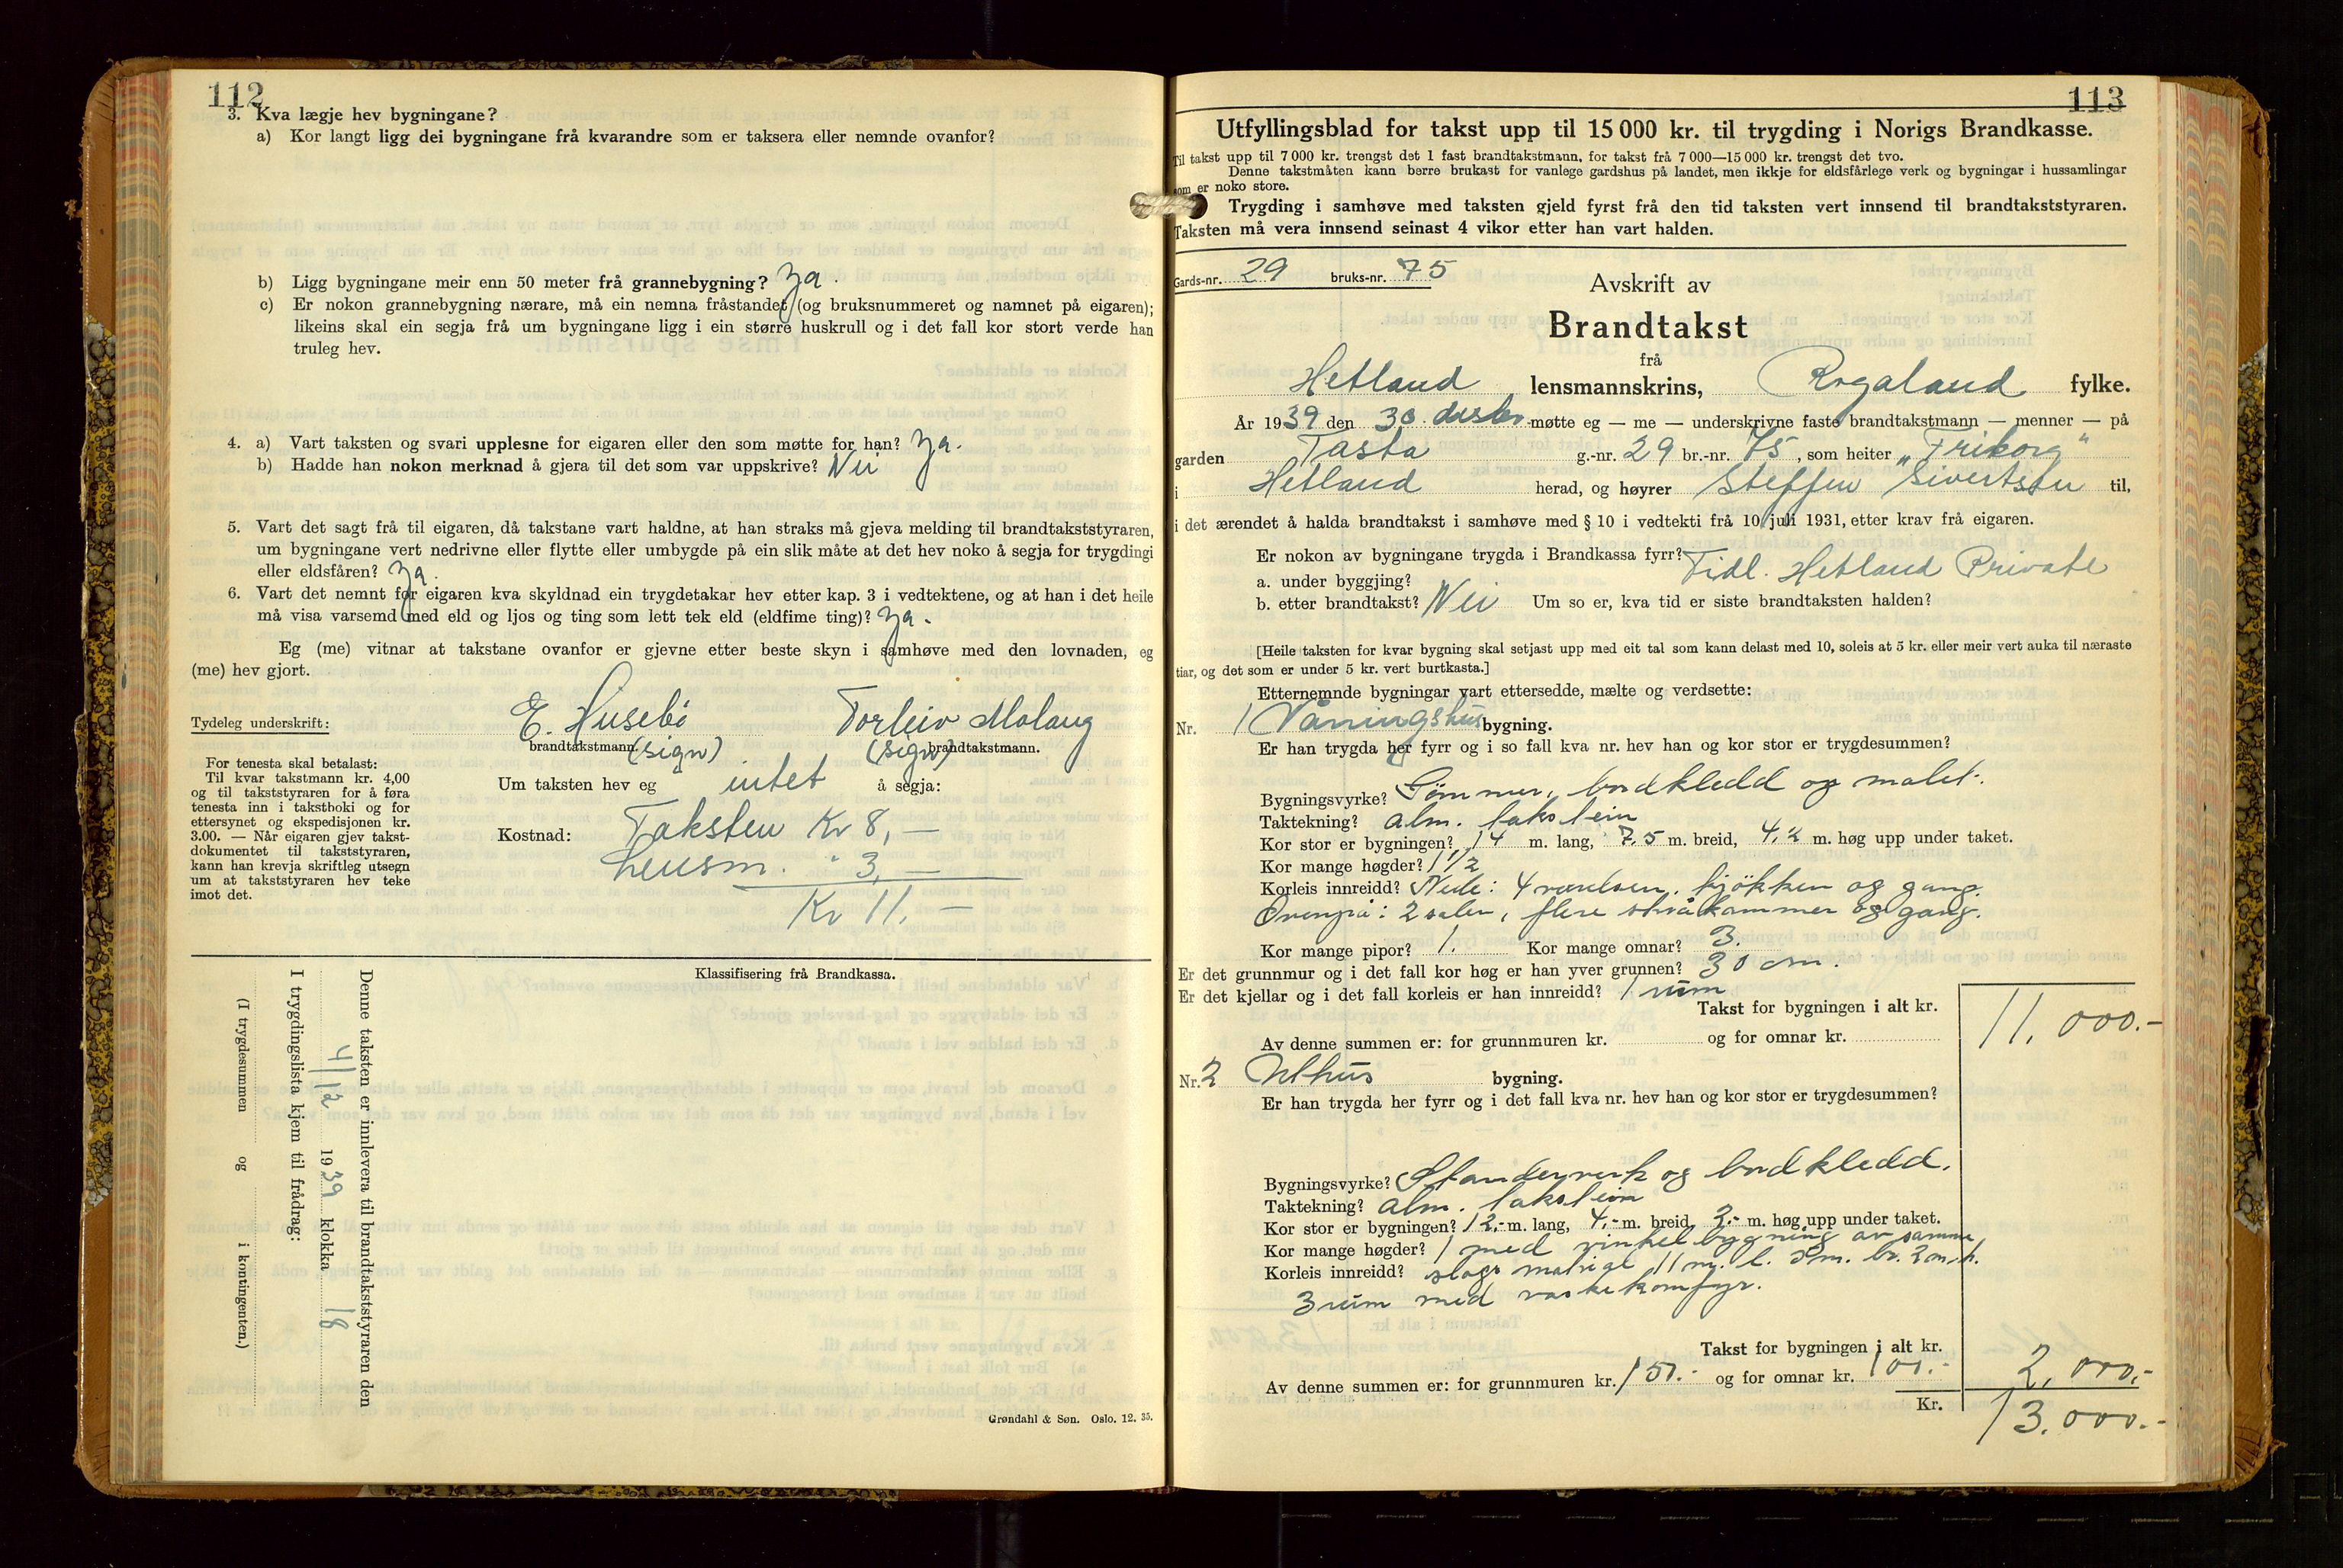 112
3. Kva lægje hev bygningane?
a) Kor langt ligg dei bygningane frå kvarandre som er taksera eller nemnde ovanfor?
b) Ligg bygningane meir enn 50 meter frå grannebygning? Ja.
c) Er nokon grannebygning nærare, må ein nemna fråstandet (og bruksnummeret og namnet på eigaren);
likeins skal ein segja frå um bygningane ligg i ein større huskrull og i det fall kor stort verde han
truleg hev.
4. a) Vart taksten og svari upplesne for eigaren eller den som møtte for han? Ja.
b) Hadde han nokon merknad å gjera til det som var uppskrive? Nei
5. Vart det sagt frå til eigaren, då takstane vart haldne, at han straks må gjeva melding til brandtakststyraren,
um bygningane vert nedrivne eller flytte eller umbygde på ein slik måte at det hev noko å segja for trygdingi
eller eldsfåren? Ja.
6. Vart det nemnt for eigaren kva skyldnad ein trygdetakar hev etter kap. 3 i vedtektene, og at han i det heile
må visa varsemd med eld og ljos og ting som lett tek eld (eldfime ting)? Ja.
Eg (me) vitnar at takstane ovanfor er gjevne etter beste skyn i samhøve med den lovnaden, eg
(me) hev gjort.
Tydeleg underskrift: E. Husebö Torleiv Molaug
brandtakstmann. (sign) (sign) brandtakstmann.
For tenesta skal betalast:
Til kvar takstmann kr. 4,00
og til takststyraren for å føra
tenesta inn i takstboki og for
ettersynet og ekspedisjonen kr.
3.00. — Når eigaren gjev takst-
dokumentet til takststyraren,
kann han krevja skriftleg utsegn
um at takststyraren hev teke
imot det.
Um taksten hev eg intet å segja:
Kostnad: Taksten Kr 8,—
Lensm. " 3,—
Kr 11.—
Klassifisering frå Brandkassa.
Denne taksten er innlevera til brandtakststyraren den
4/12 1939 klokka 18
I trygdingslista kjem til frådrag:
(I trygdesummen og i kontingenten.)
Grøndahl & Søn. Oslo. 12. 35.
113
Utfyllingsblad for takst upp til 15 000 kr. til trygding i Norigs Brandkasse.
Til takst upp til 7 000 kr. trengst det 1 fast brandtakstmann, for takst frå 7 000—15 000 kr. trengst det tvo.
Denne takstmåten kann berre brukast for vanlege gardshus på landet, men ikkje for eldsfårlege verk og bygningar i hussamlingar
som er noko store.
Trygding i samhøve med taksten gjeld fyrst frå den tid taksten vert innsend til brandtakststyraren.
Taksten må vera innsend seinast 4 vikor etter han vart halden.
Gards-nr. 29 bruks-nr. 75
Avskrift av
Brandtakst
frå
Hetland lensmannskrins, Rogaland fylke.
År 1939 den 30. møtte eg — me — underskrivne faste brandtakstmann — menner — på
garden Tasta g.-nr. 29 br.-nr. 75, som heiter „Friborg"
i Hetland herad, og høyrer Steffen Sivertsen til,
i det ærendet å halda brandtakst i samhøve med § 10 i vedtekti frå 10 juli 1931, etter krav frå eigaren.
Er nokon av bygningane trygda i Brandkassa fyrr? Tidl. Hetland Private
a. under byggjing?
b. etter brandtakst? Nei Um so er, kva tid er siste brandtaksten halden?
[Heile taksten for kvar bygning skal setjast upp med eit tal som kann delast med 10, soleis at 5 kr. eller meir vert auka til næraste
tiar, og det som er under 5 kr. vert burtkasta.]
Etternemnde bygningar vart ettersedde, mælte og verdsette:
Nr. 1 Våningshus bygning.
Er han trygda her fyrr og i so fall kva nr. hev han og kor stor er trygdesummen?
Bygningsvyrke? Tömmer, bordkledd og malet.
Taktekning? alm. takstein
Kor stor er bygningen? 14 m. lang, 7,5 m. breid, 4,2 m. høg upp under taket.
Kor mange høgder? 1 1/2
Korleis innreidd? Nede: 4 værelser, kjökken og gang.
Ovenpå: 2 saler, flere småkammer og gang.
Kor mange pipor? 1. Kor mange omnar? 3.
Er det grunnmur og i det fall kor høg er han yver grunnen? 30 cm.
Er det kjellar og i det fall korleis er han innreidd? 1 rum
Takst for bygningen i alt kr. 11.000.-
Av denne summen er: for grunnmuren kr. og for omnar kr.
Nr. 2 Uthus bygning.
Er han trygda her fyrr og i det fall kva nr. hev han og kor stor er trygdesummen?
Bygningsvyrke? Standerverk og bordkledd.
Taktekning? alm. takstein
Kor stor er bygningen? 12,- m. lang, 4,- m. breid, 2,- m. høg upp under taket.
Kor mange høgder? 1 med vinkelbygning av samme
Korleis innreidd? slags matrial 11 m. l. 3 m. br. 2 m. h.
3 rum med vaskekomfyr.
Takst for bygningen i alt kr. 2,000,-
Av denne summen er: for grunnmuren kr. 150.- og for omnar kr. 100.-
Kr. 13.000.-